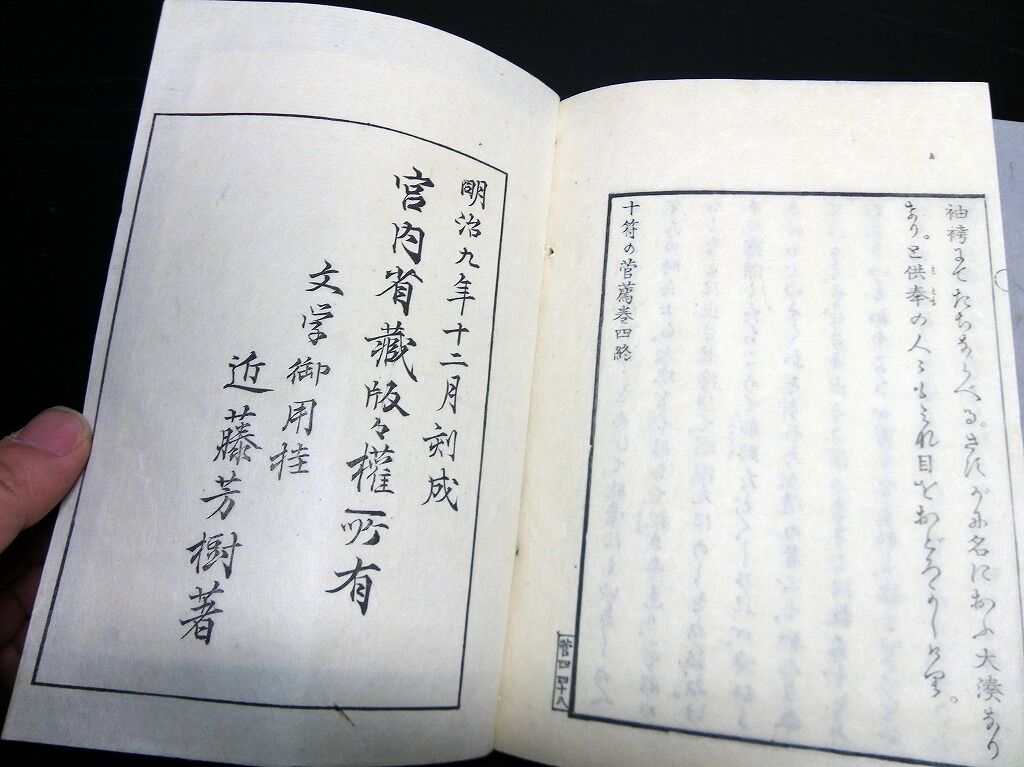 袖袴にてたちならべる。さすがに名におふ大湊なり
なり。と供奉の人〻もみな目をおどろかしけり。
十符の菅薦巻四終
菅四 四十八
明治九年十二月刻成
宮内省蔵版々權所有
文学御用掛
近藤芳樹著